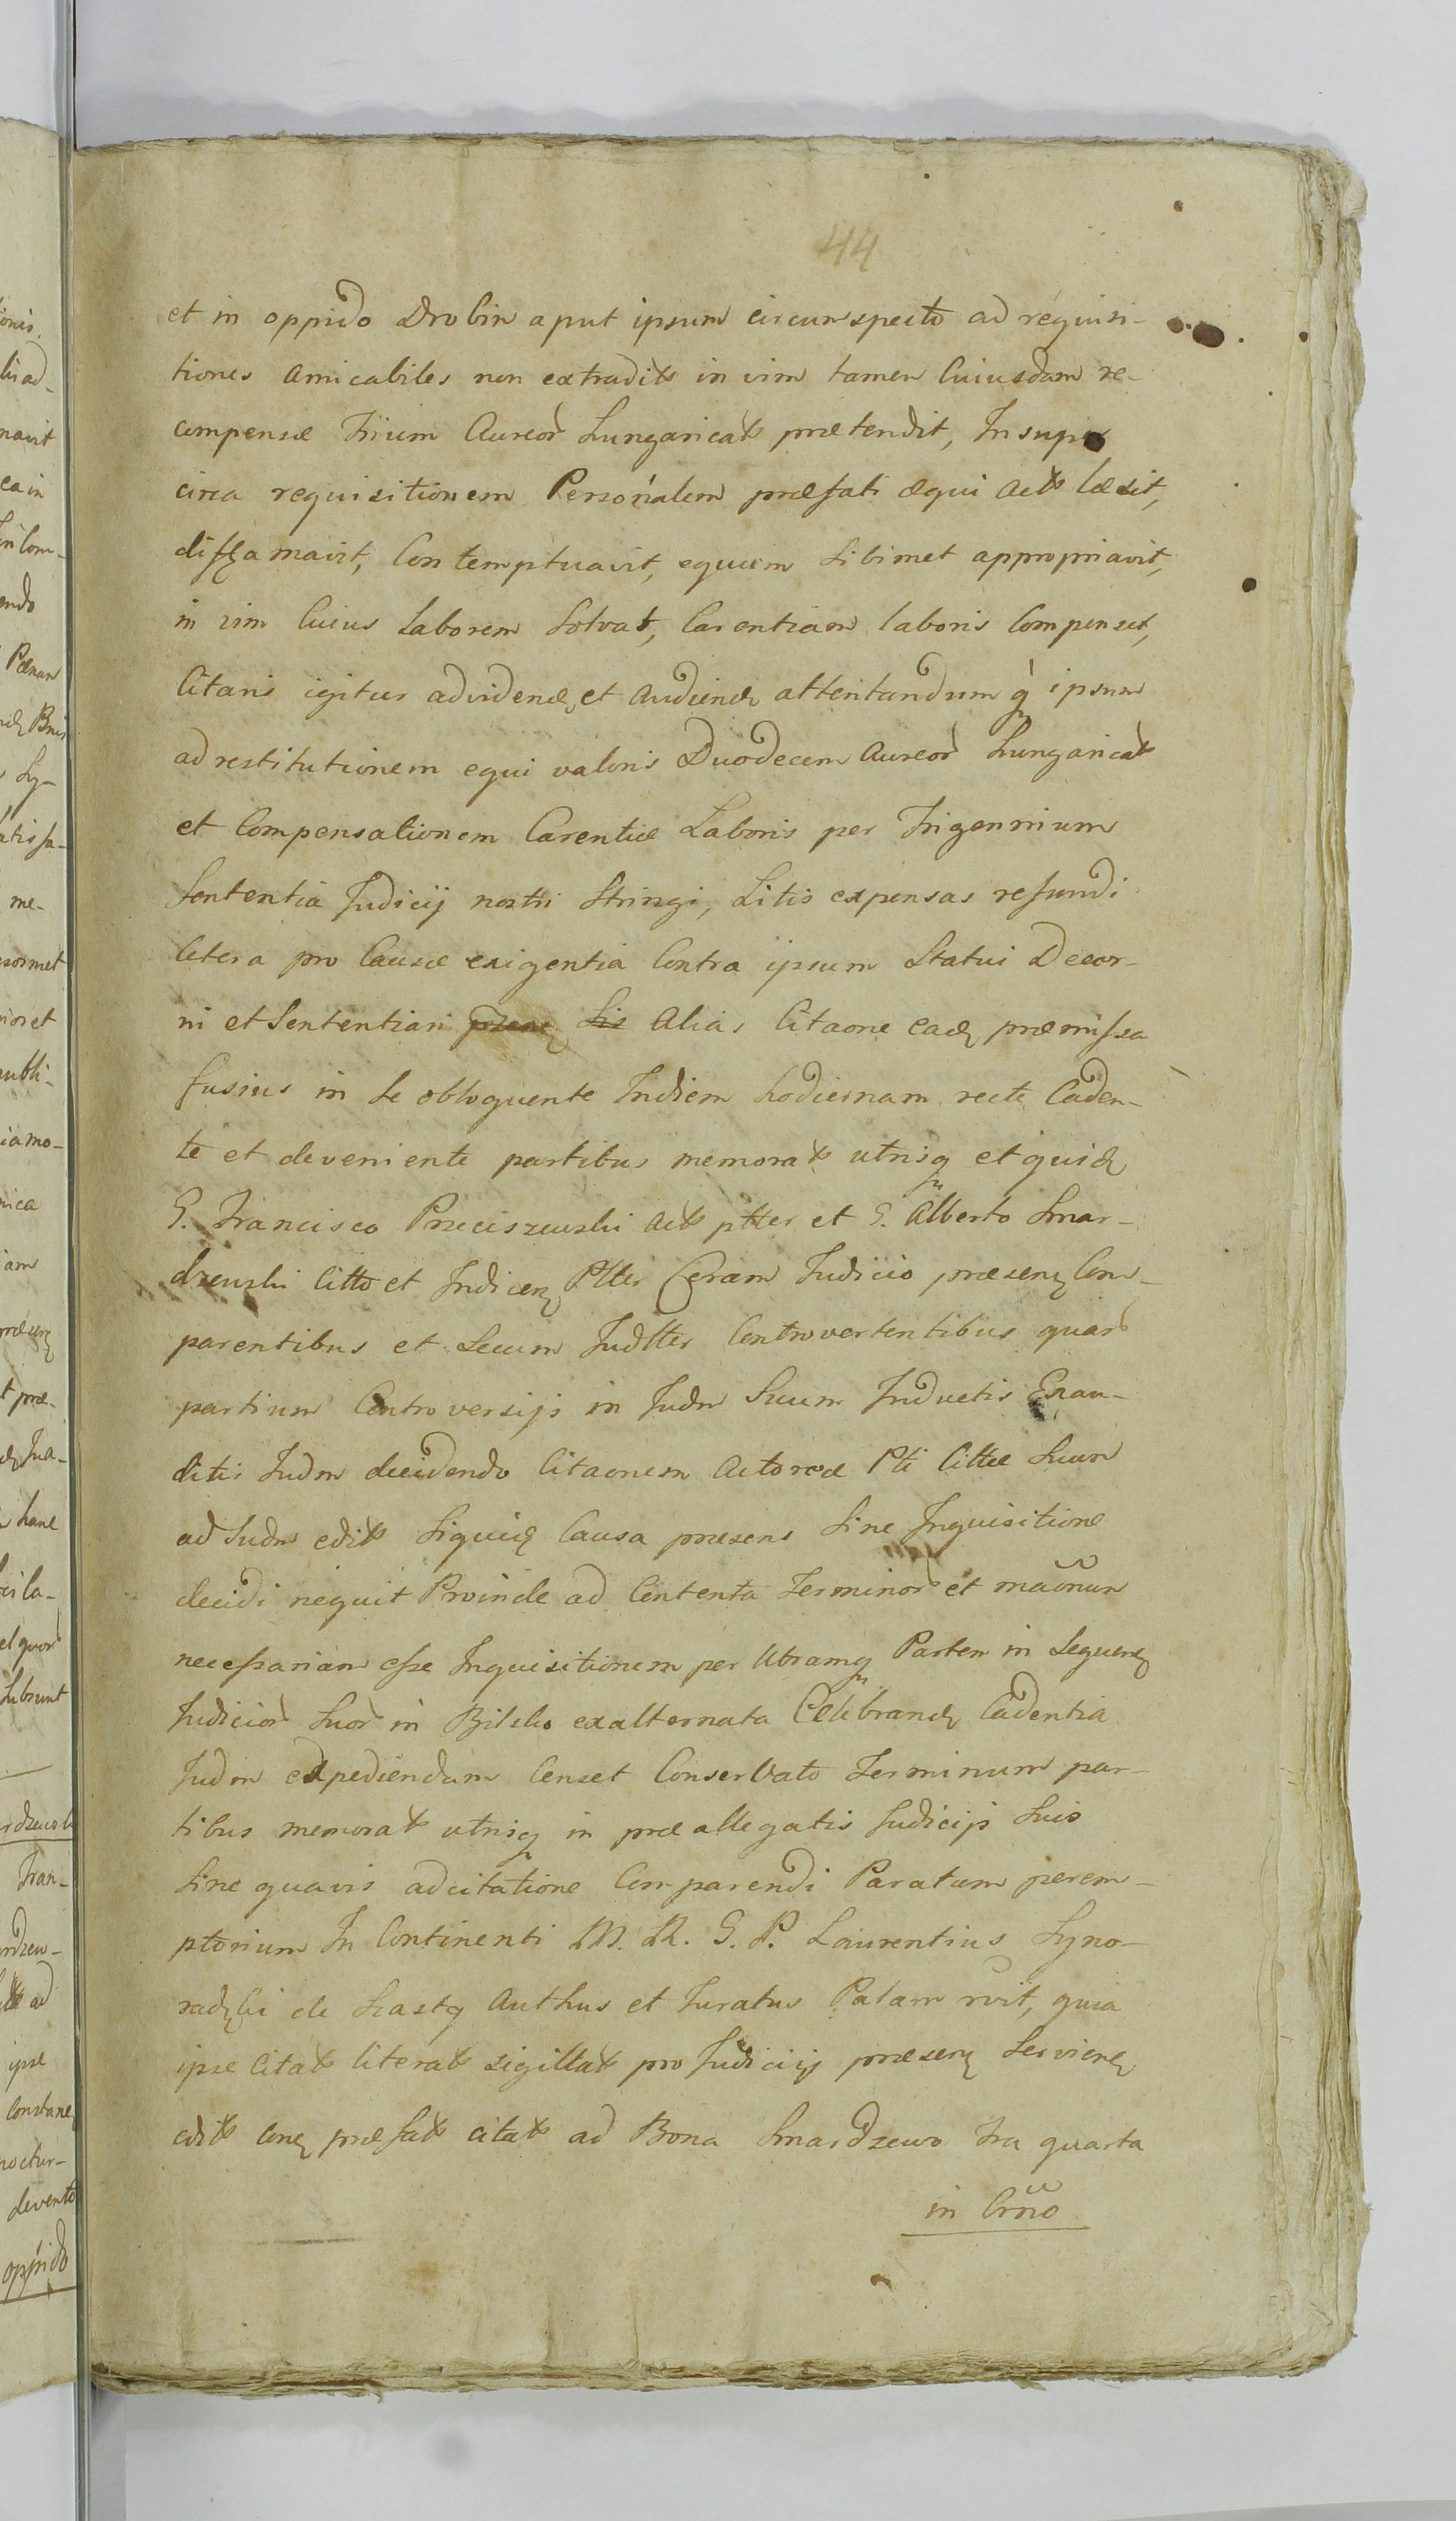 44
et in oppido Drobin aput ipsum circumspecto ad requisi-
tiones amicabiles non extradit in vim tamen Cuiusdam re-
compensæ Trium Aureor Hungarical prætendit, Insuper
circa requisitionem Personalem præfati æqui Act læsit,
diffamavit, Contemptuavit, equum sibimet appropriavit,
in vim Cuius Laborem Solvat, Carentiam laboris Compenset,
Citaris igitur advidend, et Audiend attentandum q ipsum
ad restitutionem equi valoris Duodecem Aureor Hungarical
et Compensationem Carentiæ Laboris per Trigennium
Sententia Judicij nostri Stringi, Litis expensas refundi
Cetera pro Causæ exigentia Contra ipsum Statui Decer-
ni et Sententiari Alias Citaone ead præmissa
fusius in se obloquente In diem hodiernam recte Caden-
te et deveniente partibus memorat utrisq et quid
G. Francisco Przeciszewski Act ptter et G. Alberto Smar-
dzewski Citto et Indicen Ptter Coram Judicio præsen Com-
parentibus et Secum Judtter Controvertentibus quar
partium Controversijs in Judm Suum Inductis Exau-
ditis Judm decidendo Citaonem Actoreæ Pti Cittæ Suum
ad Judm edit Siquid Causa præsens Sine Inquisitione
decidi nequit Proinde ad Contenta Terminor et maõnum
necessariam esse Inquisitionem per Utramq Partem in Sequen
Judicior Suor in Bilsko exalternata Celebrand Cadentia
Judm expediendam Censet Conservato Terminum par-
tibus memorat utrisq in præallegatis Judicijs Suis
Sine quavis adcitatione Comparendi Paratum perem-
ptorium In Continenti M. R. G. P. Laurentius Syno-
radzki de Szasty Authus et Juratus Palam rvit, quia
ipse Citat literat sigillat pro Judicijs præsen Servien
edit Con præfat citat ad Bona Smardzewo Fra quarta
in Crñno